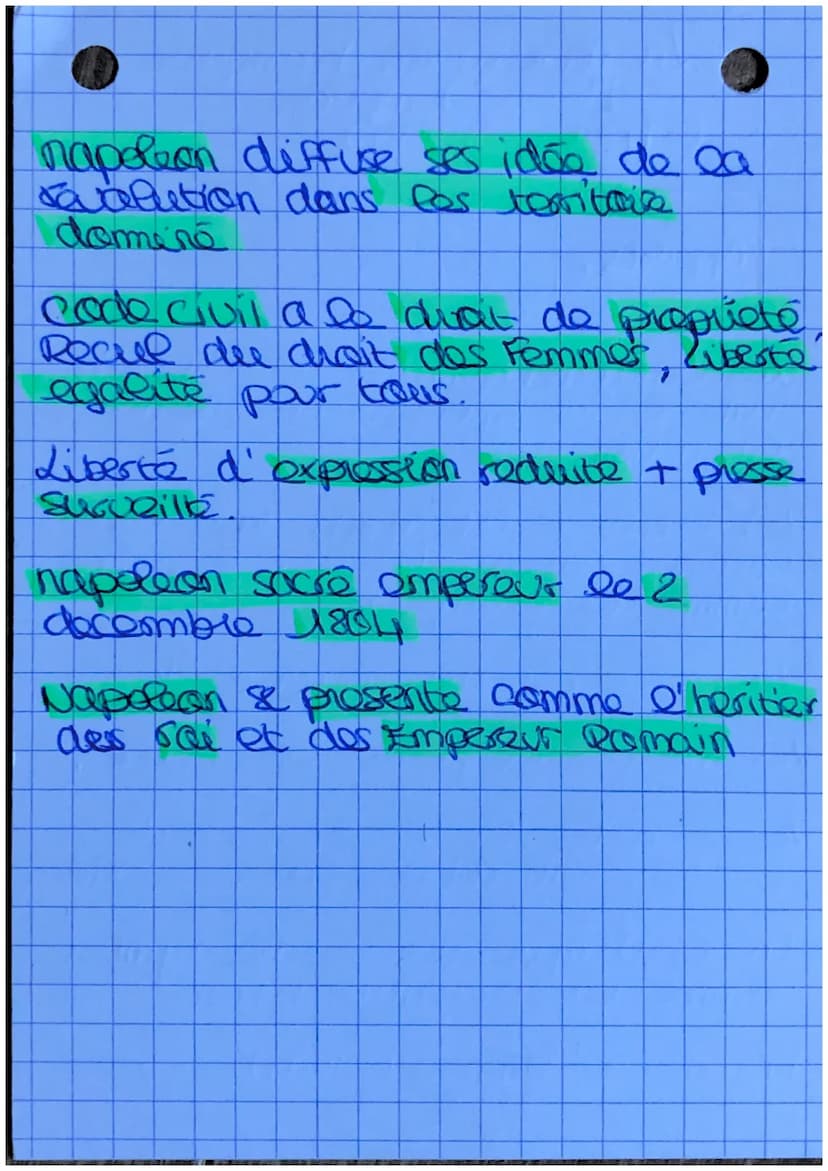 napoleon diffuse ses idée de la
révolution dans les territoire
dominé
Code civil a le droit de propriété,
Recul du droit des Femmes, Liberté
egalité pour tous.
Liberté d'expression reduite + presse
surveillé.
napoleon sacré empereur le 2
decembre 1804
Napoleon se presente comme l'heritier
des roi et des Empereur Romain